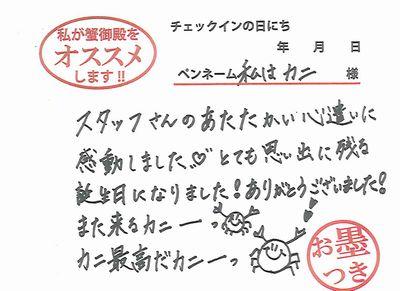 私が蟹御殿を
オススメ
します!!
チェックインの日にち
年 月 日
ペンネーム 私はカニ 様
スタッフさんのあたたかい心遣いに
感動しました♡とても思い出に残る
誕生日になりました!ありがとうございました!
また来るカニーっ
カニ最高だカニーっ
お墨
つき